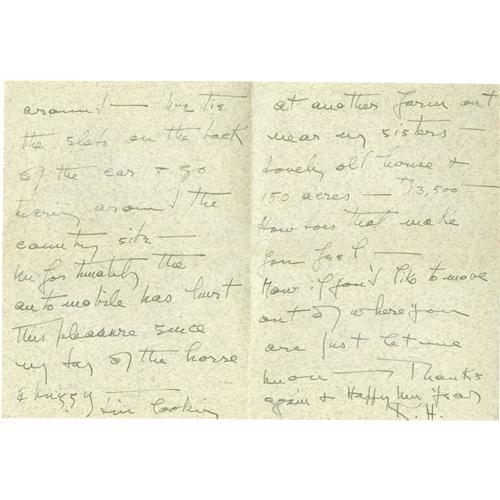 around — We tie
the sleds on the back
of the car & go
tearing around the
country side —
Unfortunately the
automobile has hurt
this pleasure since
my day of the horse
& buggy — I'm looking
at another farm out
near my sisters —
Lovely old house &
150 acres — $13,500 —
How does that make
you feel —
Now if you'd like to move
out of where you
are just let me
know — Thanks
again & Happy New Year
K. H.